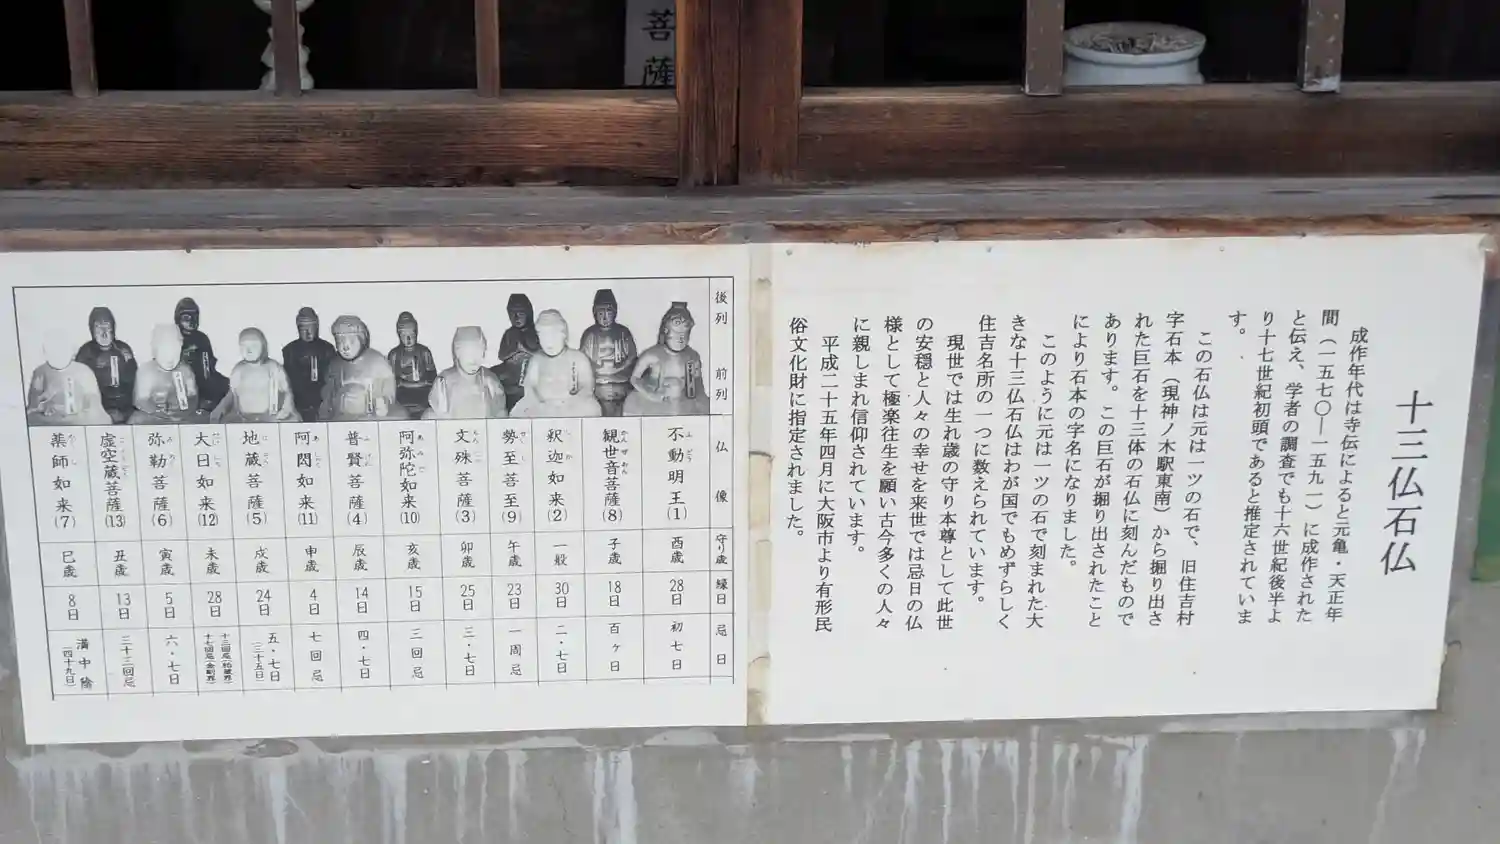 菩薩
十三仏石仏
成作年代は寺伝によると元亀・天正年
間(一五七〇―一五九一)に成作された
と伝え、学者の調査でも十六世紀後半よ
り十七世紀初頭であると推定されていま
す。
この石仏は元は一ツの石で、旧住吉村
字石本(現神ノ木駅東南)から掘り出さ
れた巨石を十三体の石仏に刻んだもので
あります。この巨石が掘り出されたこと
により石本の字名になりました。
このように元は一ツの石で刻まれた大
きな十三仏石仏はわが国でもめずらしく
住吉名所の一つに数えられています。
現世では生れ歳の守り本尊として此世
の安穏と人々の幸せを来世では忌日の仏
様として極楽往生を願い古今多くの人々
に親しまれ信仰されています。
平成二十五年四月に大阪市より有形民
俗文化財に指定されました。
後列 前列 仏像 守り歳 縁日 忌日
不動明王(1) 酉歳 28日 初七日
観世音菩薩(8) 子歳 18日 百ヶ日
釈迦如来(2) 一般 30日 二・七日
勢至菩至(9) 午歳 23日 一周忌
文殊菩薩(3) 卯歳 25日 三・七日
阿弥陀如来(10) 亥歳 15日 三回忌
普賢菩薩(4) 辰歳 14日 四・七日
阿閦如来(11) 申歳 4日 七回忌
地蔵菩薩(5) 戌歳 24日 五・七日(三十五日)
大日如来(12) 未歳 28日 十三回忌 十七回忌
弥勒菩薩(6) 寅歳 5日 六・七日
虚空蔵菩薩(13) 丑歳 13日 三十三回忌
薬師如来(7) 巳歳 8日 満中陰(四十九日)